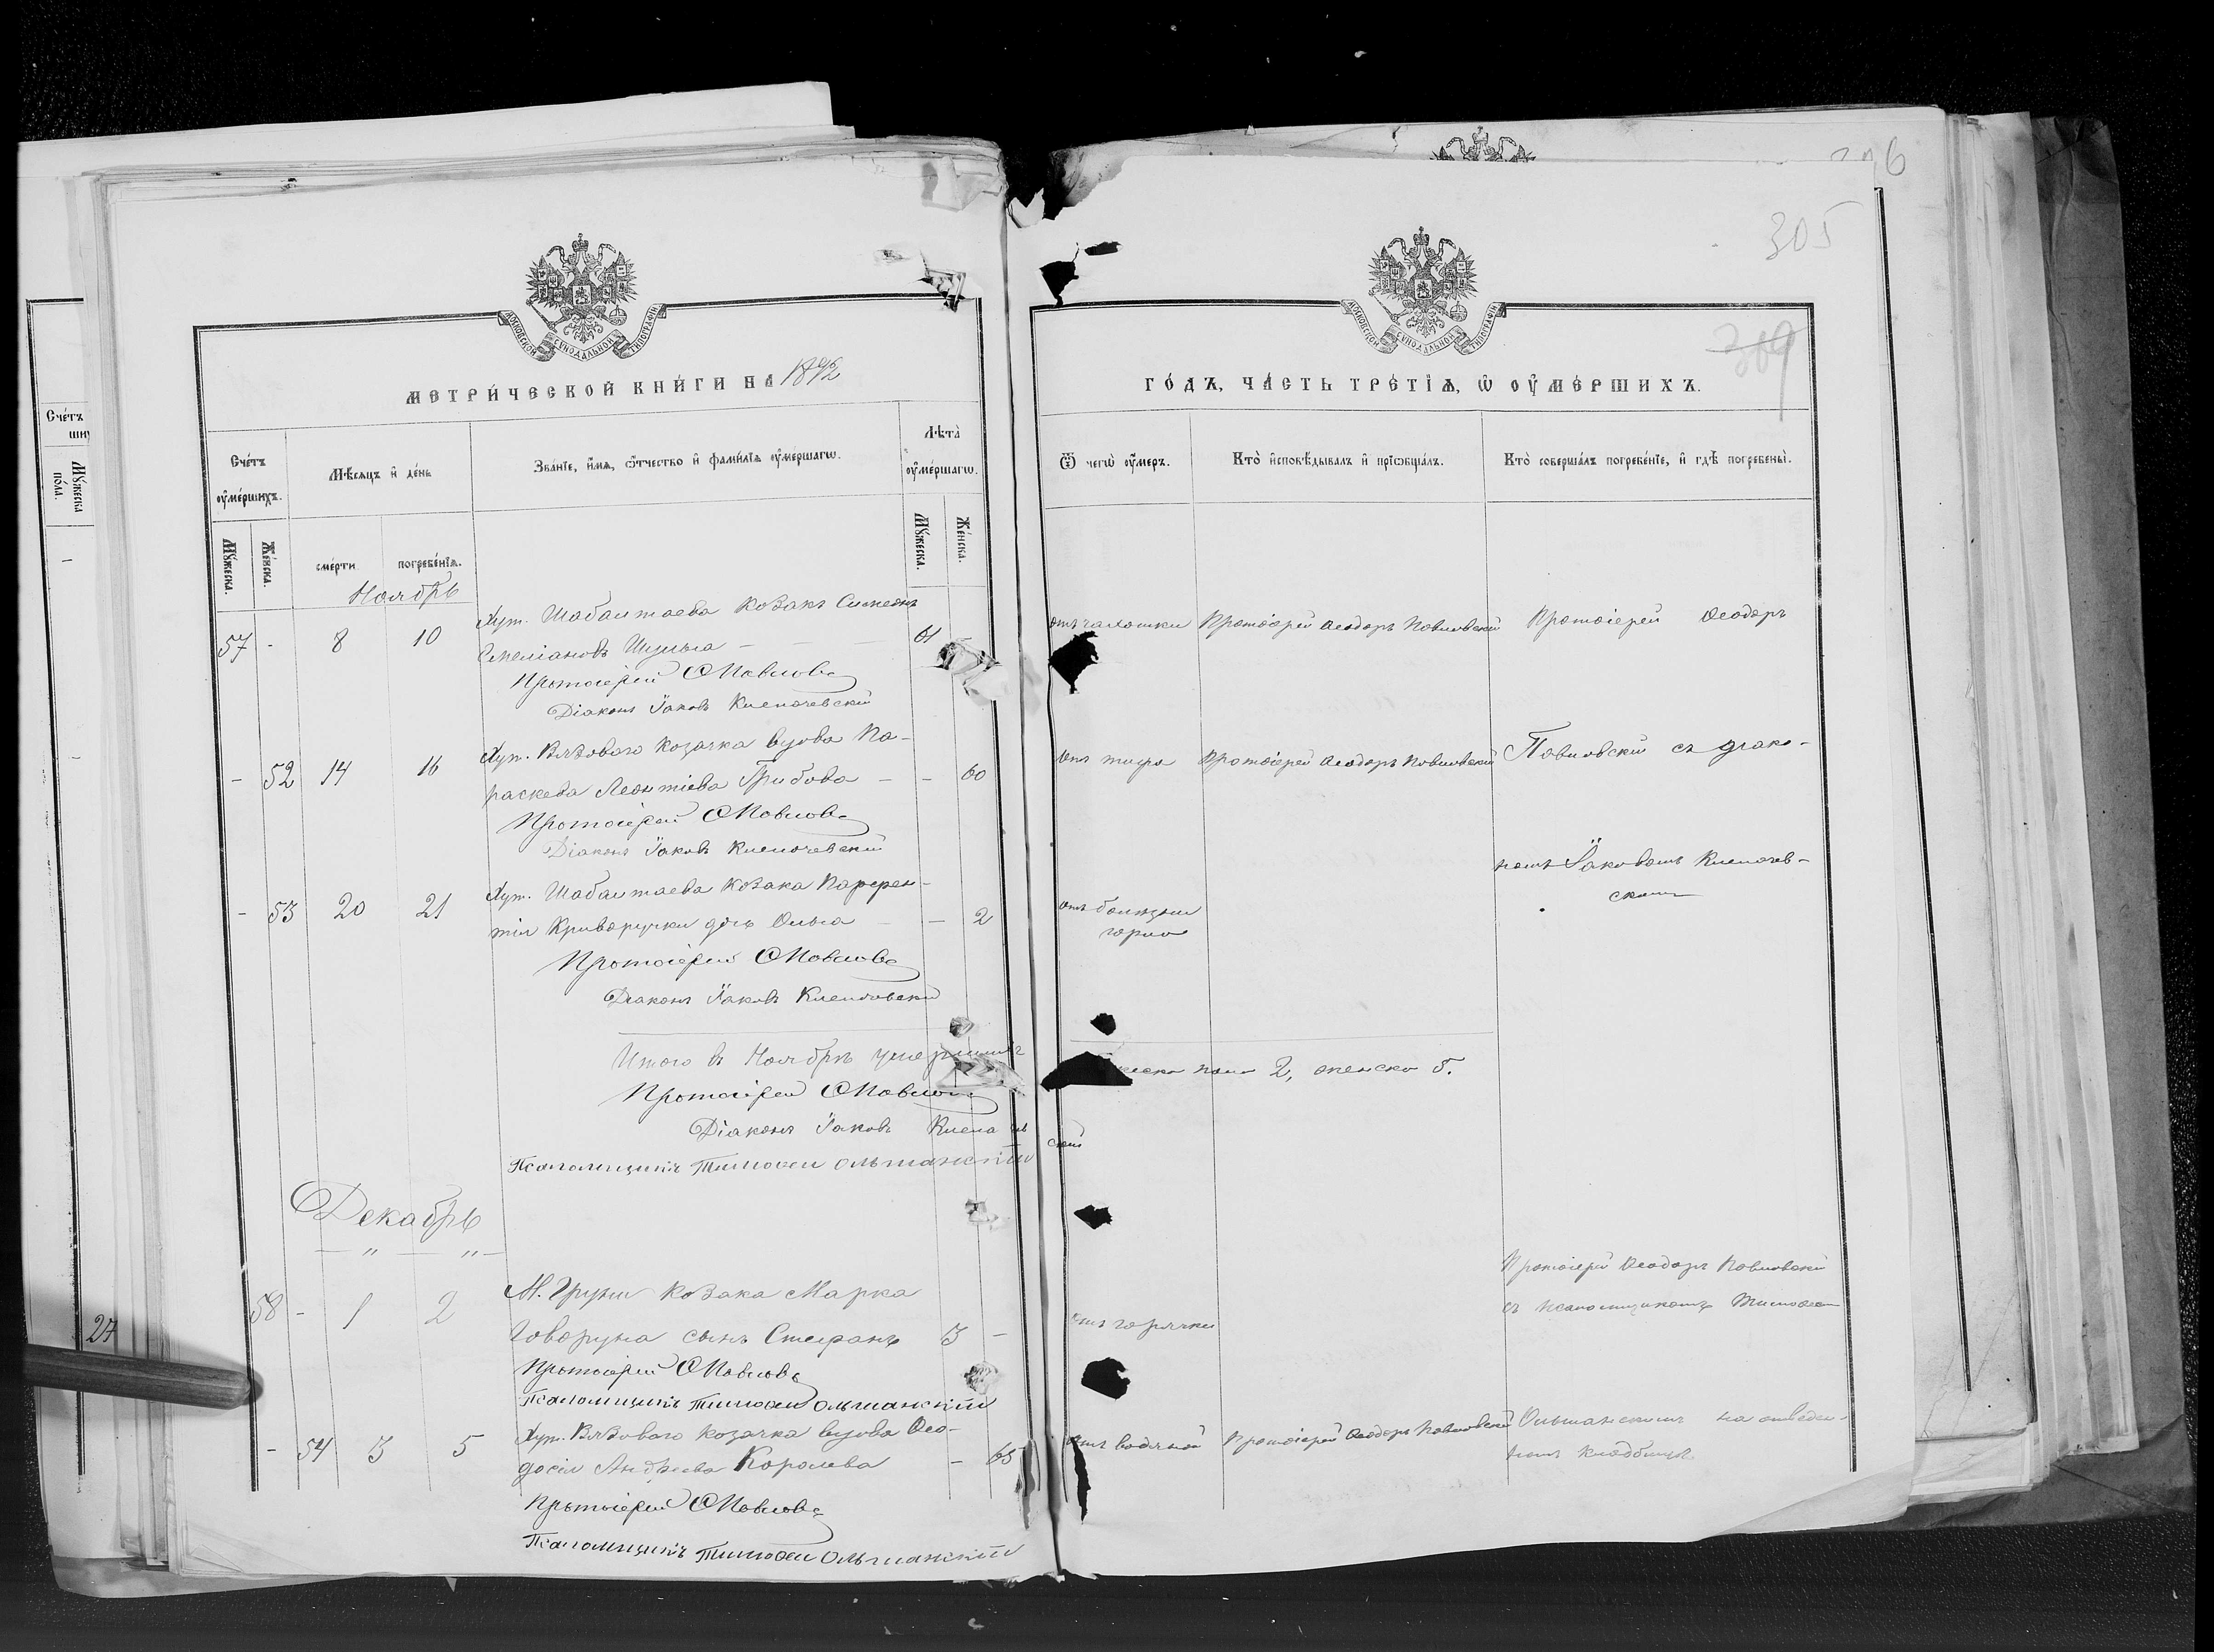 305
МОСКОВСКОЙ СѴНОДАЛЬНОЙ ТИПОГРАФІИ
МЕТРИ́ЧЕСКОЙ КНИ́ГИ НА 1892
Сче́тъ оу҆ме́ршихъ.
Мѣ́сяцъ и҆ де́нь
Зва́нїе, и҆́мѧ, ѻ҆́тчество и҆ фами́лїѧ оу҆ме́ршагѡ.
Лѣта̀ оу҆ме́ршагѡ.
Мꙋ́жеска.
Же́нска.
сме́рти
погребе́нїѧ.
Мꙋ́жеска.
Же́нска.
Ноябрь
57 - 8 10 Хут. Шабалтаева козакъ Симеонъ
Емеліановъ 61
Протоіерей Ѳ Павловс
Діаконъ Іаковъ Клепачевскій
- 52 14 16 Хут. козачка вдова Па-
раскева Леонтіева Грибова - - 60
Протоіерей Ѳ Павловс
Діаконъ Іаковъ Клепачевскій
- 53 20 21 Хут. Шабалтаева козака Парфен-
тія Криворучки дочь Ольга - - 2
Протоіерей Ѳ Павловс
Діаконъ Іаковъ Клепачевскій
Итого въ Ноябрѣ умершихъ
Протоіерей Ѳ Павловс
Діаконъ Іаковъ Клепа
Псаломщикъ Тимоѳей Ольшанскій
Декабрь
— " — " —
58 - 1 2 М. Груни козака Марка
Говоруна сынъ Стефанъ 3 -
Протоіерей Ѳ Павловс
Псаломщикъ Тимоѳей Ольшанскій
- 54 3 5 Хут. козачка вдова Ѳео-
досія Андреева Королева - 65
Протоіерей Ѳ Павловс
Псаломщикъ Тимоѳей Ольшанскій
27
МОСКОВСКОЙ СѴНОДАЛЬНОЙ ТИПОГРАФІИ
ГО́ДЪ, ЧА́СТЬ ТРЕ́ТЇѦ, Ѡ҆ ОУ҆МЕ́РШИХЪ.
Ѿ чегѡ̀ оу҆́меръ.
Кто̀ и҆сповѣ́дывалъ и҆ прїѡбща́лъ.
Кто̀ соверша́лъ погребе́нїе, и҆ гдѣ̀ погребены̀.
Протоіерей Ѳеодоръ Павловскій
Протоіерей Ѳеодоръ
отъ тифа
Протоіерей Ѳеодоръ Павловскій
Павловскій съ діако-
номъ Іаковомъ Клепачев-
скимъ
отъ болѣзни
горла
пола 2, женска 5.
скій
Протоіерей Ѳеодоръ Павловскій
съ псаломщикомъ Тимоѳеемъ
отъ горячки
отъ водяной
Протоіерей Ѳеодоръ Павловскій
Ольшанскимъ на отведен-
номъ кладбищѣ